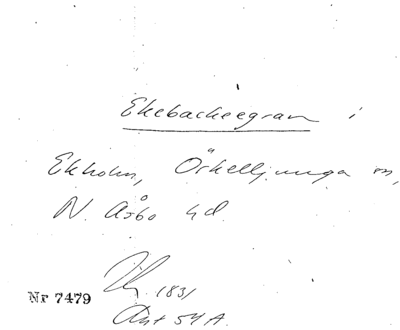 Ekebackegran i
Ekholm, Örkelljunga sn,
N. Åsbo hd.
1831
Nr 7479
Ant 54 A